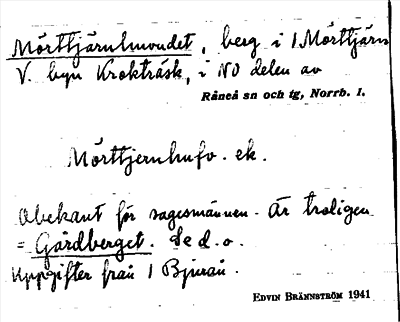 Mörttjärnhuvudet, berg i 1 Mörttjärn
V. byn Krokträsk, i NO delen av
Råneå sn och tg, Norrb. l.
Mörttjernhufv. ek.
Obekant för sagesmännen. Är troligen
= Gårdberget. Se d. o.
Uppgifter från 1 Bjurån.
EDVIN BRÄNNSTRÖM 1941